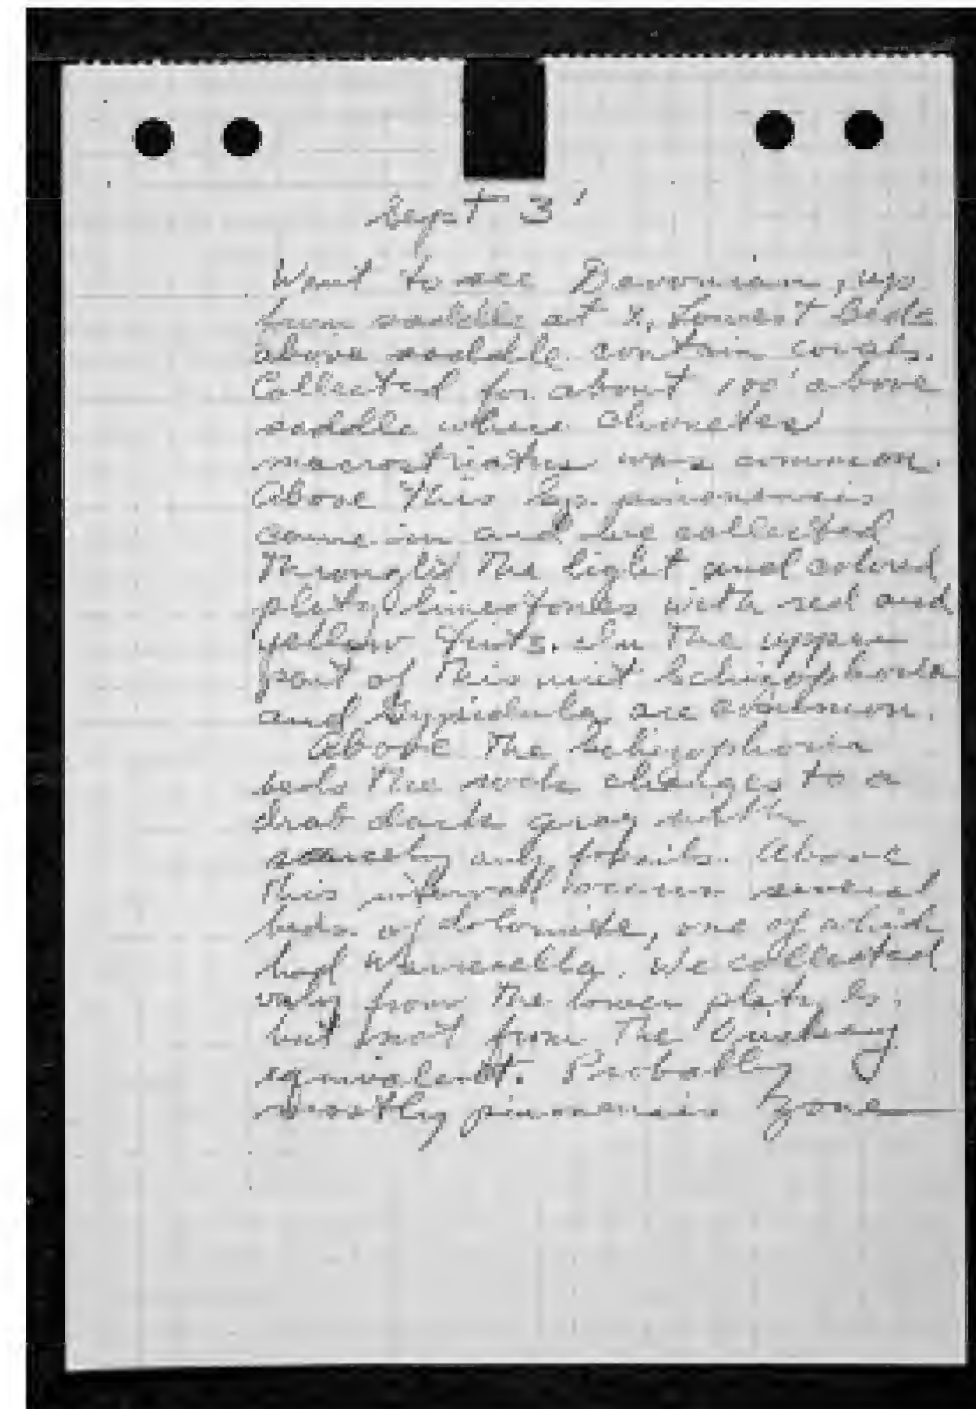 Sept 3
Went to see Devonian, up
from saddle at X, Lowest beds
above saddle contain corals.
Collected for about 100' above
saddle where Chonetes
macrostriatus was common.
Above this Sp. pinonensis
come in and we collected
through the light and colored
platy limestones with red and
yellow tints. In the upper
part of this unit Schizophoria
and Gypidula are common.
Above the Schizophoria
beds the rock changes to a
drab dark gray with
scarcely any fossils. Above
this intervall occurs several
beds of dolomite, one of which
had Warrenella. We collected
only from the lower platy ls.
but not from the
equivalent. Probably
mostly pinonensis zone